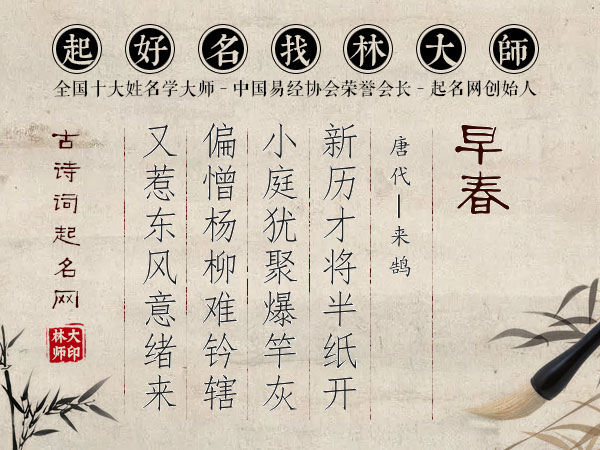 起好名找林大師
全国十大姓名学大师 - 中国易经协会荣誉会长 - 起名网创始人
早春
唐代—来鹄
新历才将半纸开
小庭犹聚爆竿灰
偏憎杨柳难钤辖
又惹东风意绪来
古诗词起名网
林师大印